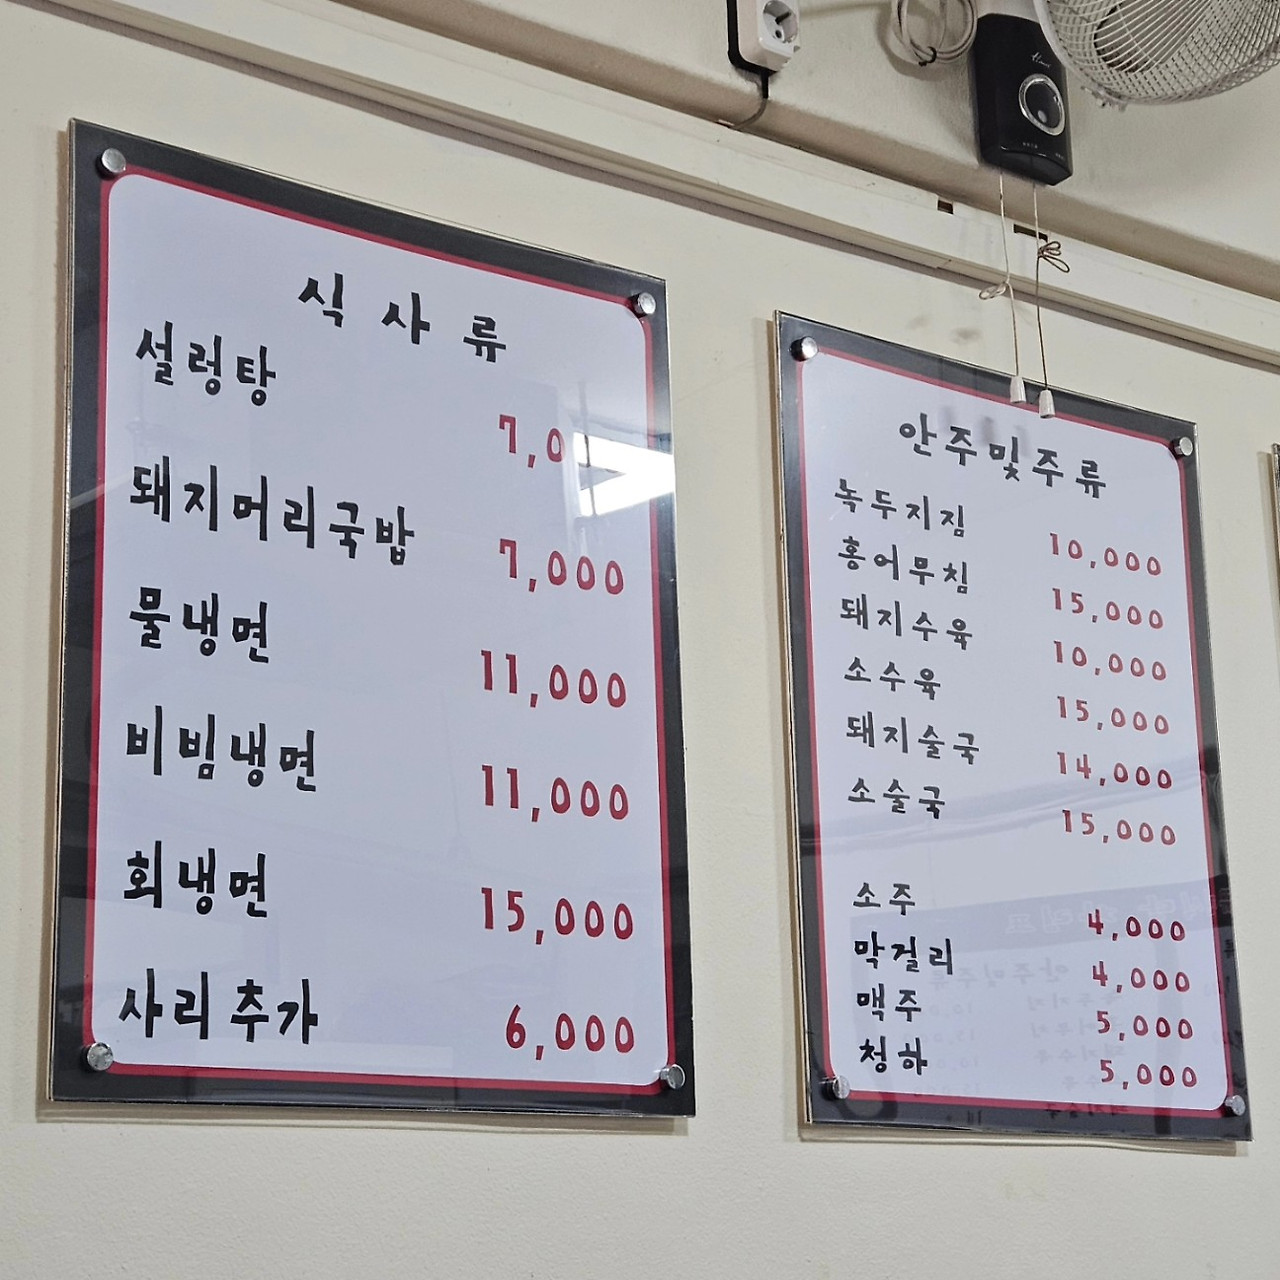 식사류
설렁탕
7,0
돼지머리국밥
7,000
물냉면
11,000
비빔냉면
11,000
회냉면
15,000
사리추가
6,000
안주및주류
녹두지짐
10,000
홍어무침
15,000
돼지수육
10,000
소수육
15,000
돼지술국
14,000
소술국
15,000
소주
4,000
막걸리
4,000
맥주
5,000
청하
5,000